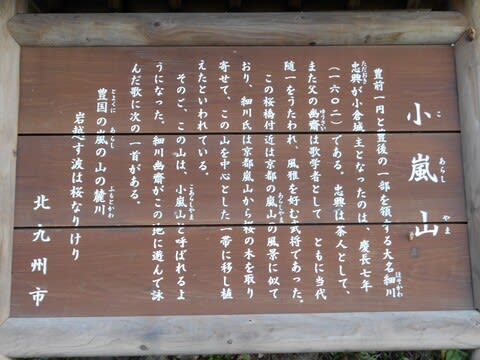 小嵐山
こあらしやま
豊前一円と豊後の一部を領する大名細川
ほそかわ
忠興が小倉城主となったのは、慶長七年
ただおき
（一六〇二）である。忠興は茶人として、
また父の幽斎は歌学者として ともに当代
ゆうさい
随一をうたわれ、風雅を好む武将であった。
この桜橋付近は京都の嵐山の風景に似て
あらしやま
おり、細川氏は京都嵐山から桜の木を取り
寄せて、この山を中心とした一帯に移し植
えたといわれている。
そのご、この山は、小嵐山と呼ばれるよ
こあらしやま
うになった。細川幽斎がこの地に遊んで詠
んだ歌に次の一首がある。
豊国の嵐の山の麓川
とよくに あらし ふもとかわ
岩越す波は桜なりけり
北九州市